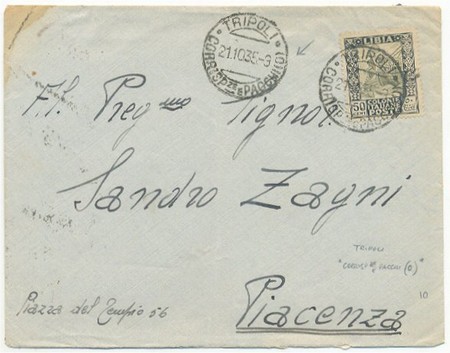 TRIPOLI
21.10.35-9
CORRISP.ZE E PACCHI (O)
LIBIA
50
POSTE
TRIPOLI
Preg.mo Signor
Sandro Zagni
TRIPOLI
(O)
10
Piazza del Tempio 56
Piacenza